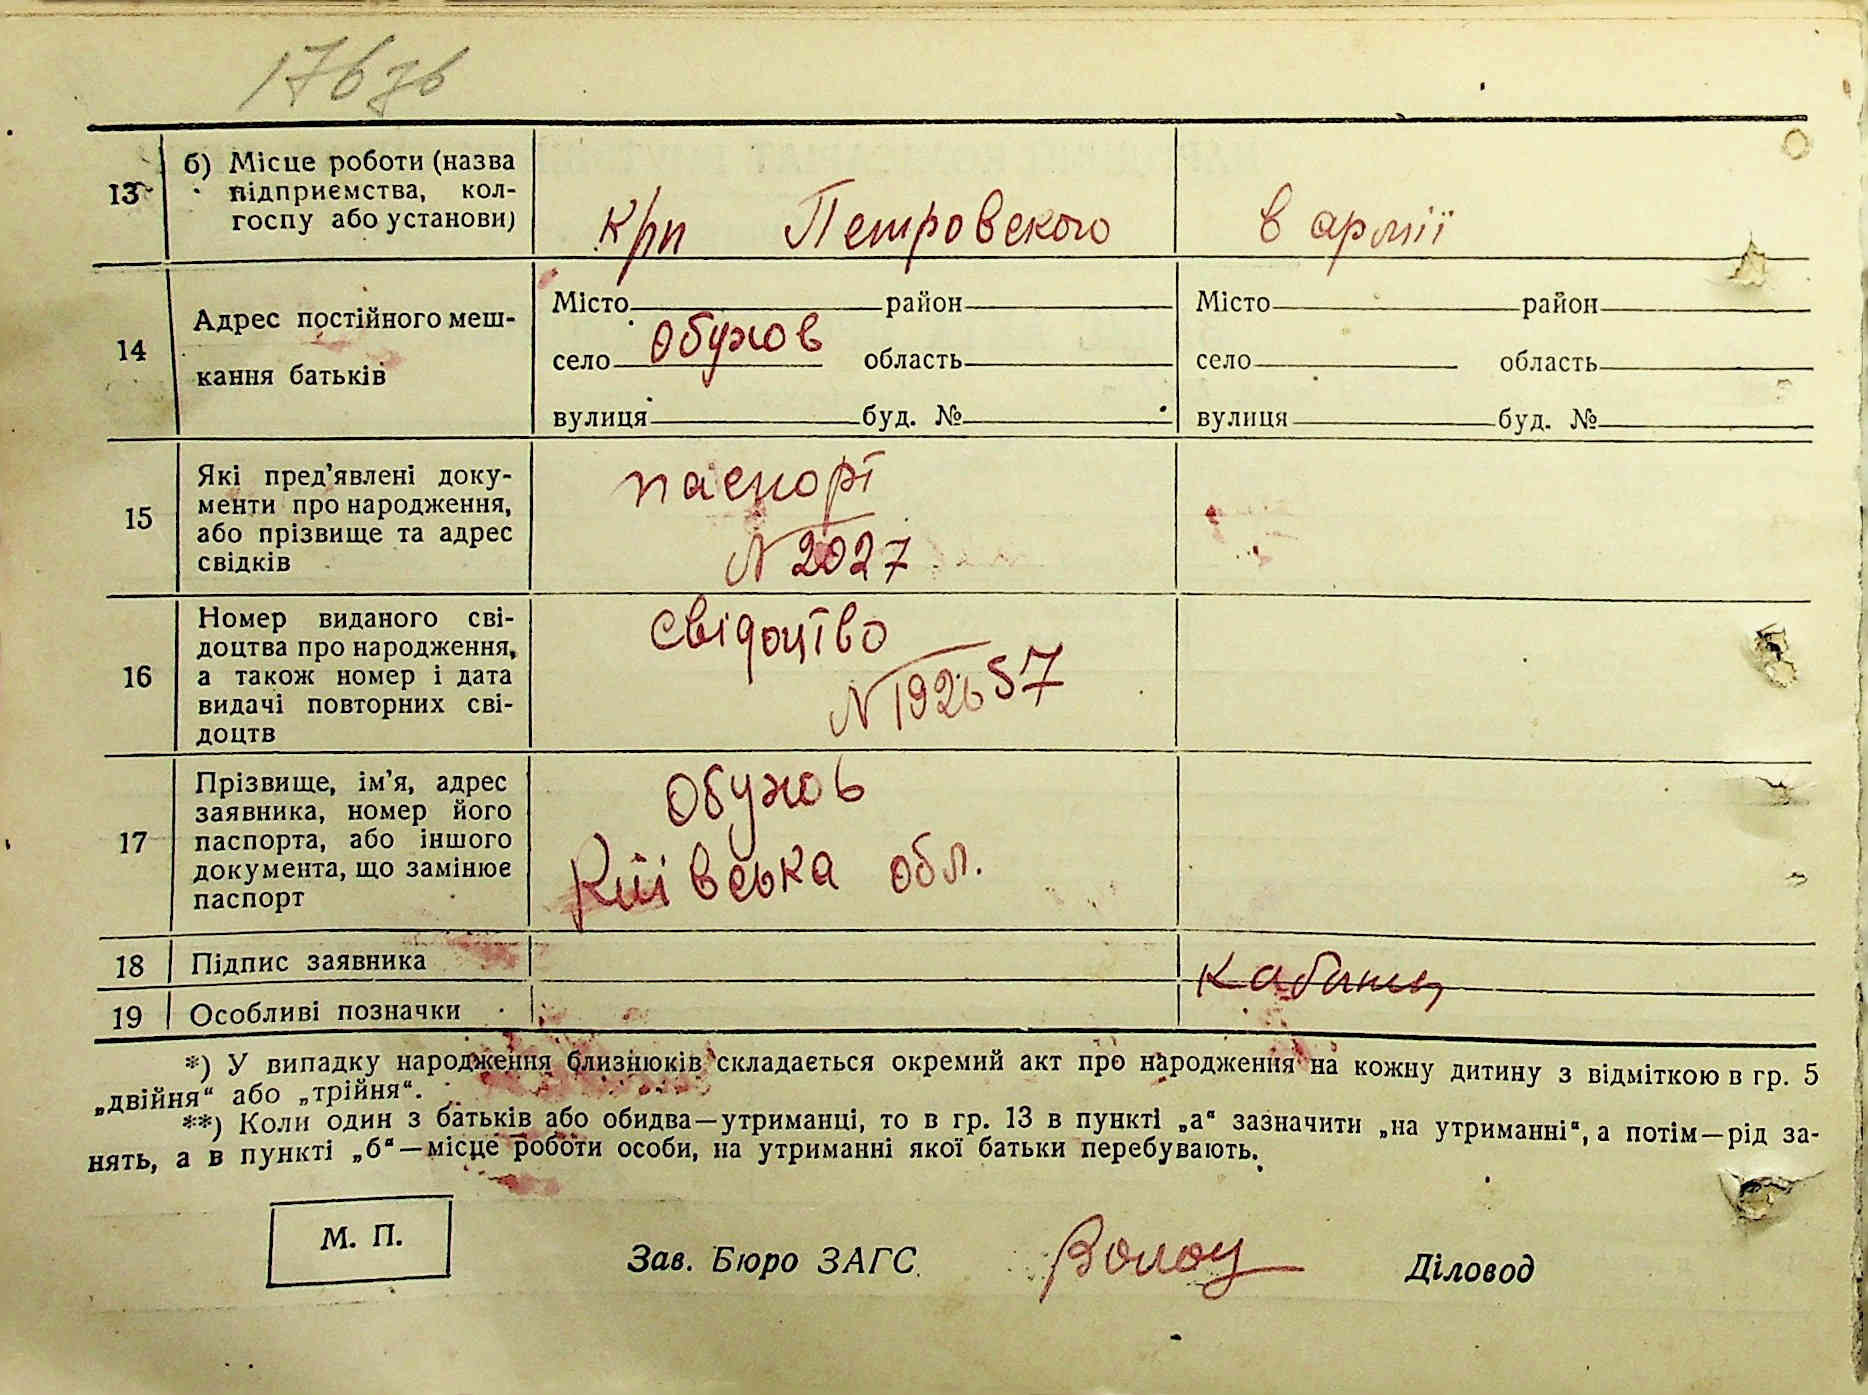 176 зв
13 б) Місце роботи (назва
підприємства, кол-
госпу або установи)
к/рп Петровского
в армії
14 Адрес постійного меш-
кання батьків
Місто район
село Обухов область
вулиця буд. №
Місто район
село область
вулиця буд. №
15 Які пред'явлені доку-
менти про народження,
або прізвище та адрес
свідків
паспорт
N 2027
16 Номер виданого сві-
доцтва про народження,
а також номер і дата
видачі повторних сві-
доцтв
свідоцтво
N 192657
17 Прізвище, ім'я, адрес
заявника, номер його
паспорта, або іншого
документа, що замінює
паспорт
Обухов
Київська обл.
18 Підпис заявника
19 Особливі позначки
*) У випадку народження близнюків складається окремий акт про народження на кожну дитину з відміткою в гр. 5
„двійня“ або „трійня“.
**) Коли один з батьків або обидва—утриманці, то в гр. 13 в пункті „а“ зазначити „на утриманні“, а потім—рід за-
нять, а в пункті „б“—місце роботи особи, на утриманні якої батьки перебувають.
М. П.
Зав. Бюро ЗАГС
Діловод